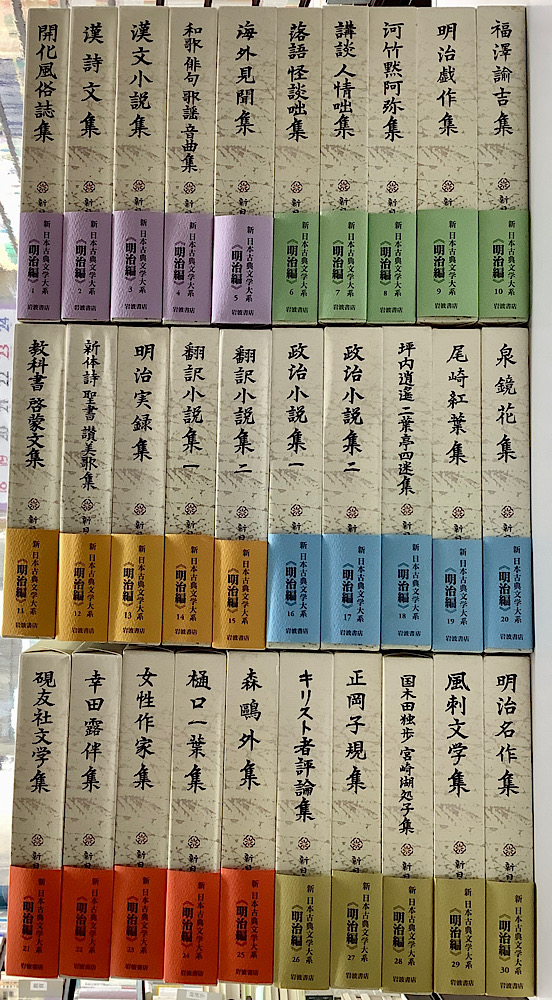 開化風俗誌集
新日
新 日本古典文学大系
《明治編》
1
岩波書店
漢詩文集
新日
新 日本古典文学大系
《明治編》
2
岩波書店
漢文小説集
新日
新 日本古典文学大系
《明治編》
3
岩波書店
和歌 俳句 歌謡 音曲集
新日
新 日本古典文学大系
《明治編》
4
岩波書店
海外見聞集
新日
新 日本古典文学大系
《明治編》
5
岩波書店
落語 怪談咄集
新日
新 日本古典文学大系
《明治編》
6
岩波書店
講談 人情咄集
新日
新 日本古典文学大系
《明治編》
7
岩波書店
河竹黙阿弥集
新日
新 日本古典文学大系
《明治編》
8
岩波書店
明治戯作集
新日
新 日本古典文学大系
《明治編》
9
岩波書店
福澤諭吉集
新日
新 日本古典文学大系
《明治編》
10
岩波書店
教科書 啓蒙文集
新日
新 日本古典文学大系
《明治編》
11
岩波書店
新体詩 聖書 讃美歌集
新日
新 日本古典文学大系
《明治編》
12
岩波書店
明治実録集
新日
新 日本古典文学大系
《明治編》
13
岩波書店
翻訳小説集 一
新日
新 日本古典文学大系
《明治編》
14
岩波書店
翻訳小説集 二
新日
新 日本古典文学大系
《明治編》
15
岩波書店
政治小説集 一
新日
新 日本古典文学大系
《明治編》
16
岩波書店
政治小説集 二
新日
新 日本古典文学大系
《明治編》
17
岩波書店
坪内逍遙 二葉亭四迷集
新日
新 日本古典文学大系
《明治編》
18
岩波書店
尾崎紅葉集
新日
新 日本古典文学大系
《明治編》
19
岩波書店
泉鏡花集
新日
新 日本古典文学大系
《明治編》
20
岩波書店
硯友社文学集
新日
新 日本古典文学大系
《明治編》
21
岩波書店
幸田露伴集
新日
新 日本古典文学大系
《明治編》
22
岩波書店
女性作家集
新日
新 日本古典文学大系
《明治編》
23
岩波書店
樋口一葉集
新日
新 日本古典文学大系
《明治編》
24
岩波書店
森鷗外集
新日
新 日本古典文学大系
《明治編》
25
岩波書店
キリスト者評論集
新日
新 日本古典文学大系
《明治編》
26
岩波書店
正岡子規集
新日
新 日本古典文学大系
《明治編》
27
岩波書店
国木田独歩 宮崎湖処子集
新日
新 日本古典文学大系
《明治編》
28
岩波書店
風刺文学集
新日
新 日本古典文学大系
《明治編》
29
岩波書店
明治名作集
新日
新 日本古典文学大系
《明治編》
30
岩波書店